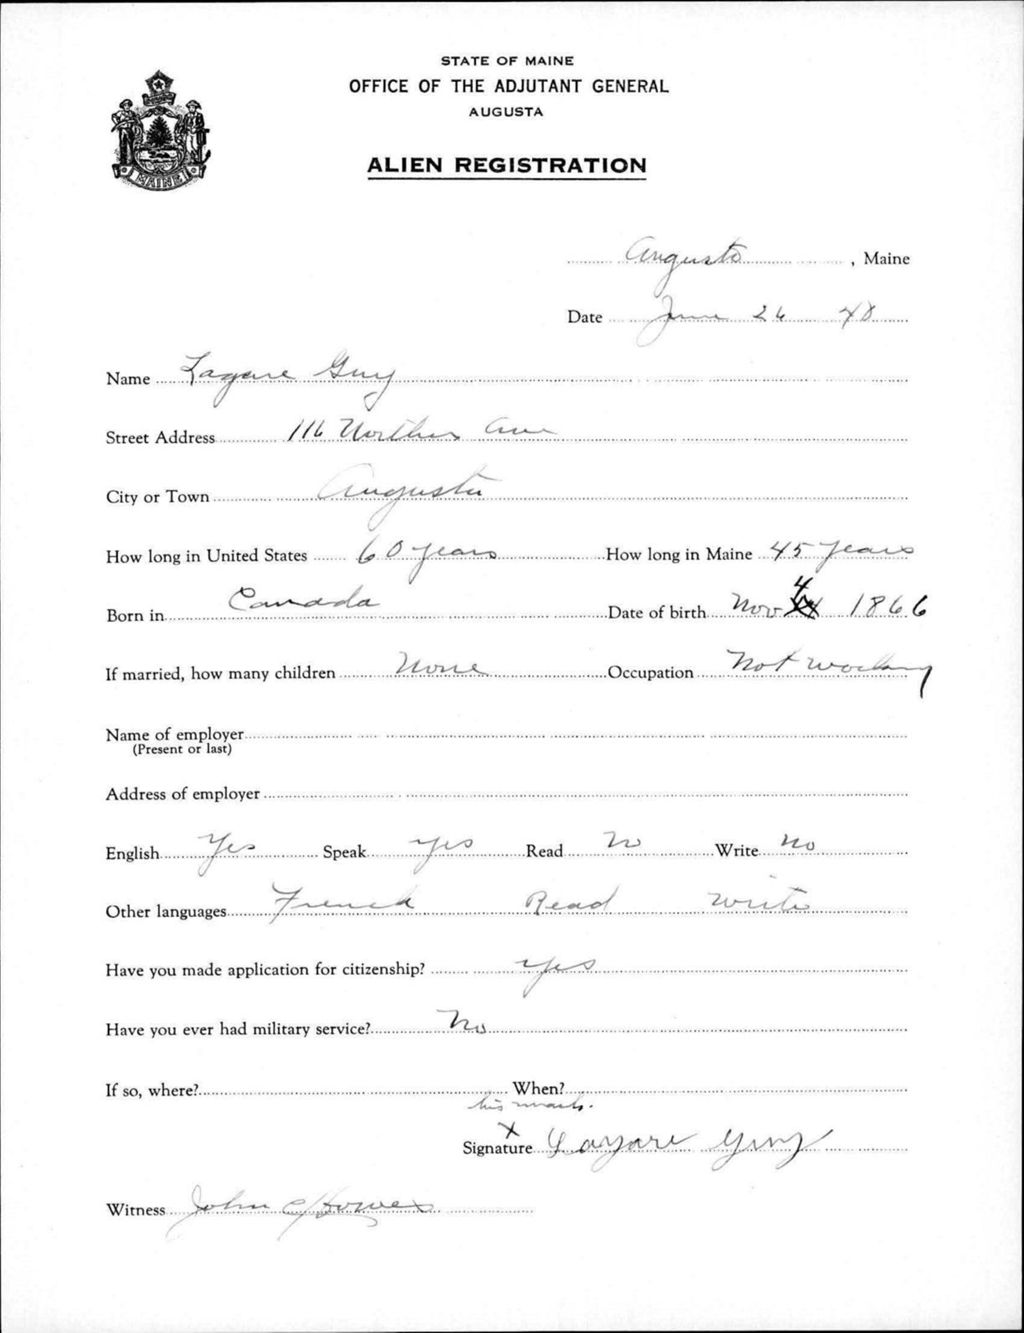 STATE OF MAINE
OFFICE OF THE ADJUTANT GENERAL
AUGUSTA
ALIEN REGISTRATION
MAINE
Augusta, Maine
Date June 26 40
Name Lazare Guy
Street Address 116 Northern Ave
City or Town Augusta
How long in United States 60 years How long in Maine 45 years
Born in Canada Date of birth Nov 4 1866
If married, how many children None Occupation Not working
Name of employer
(Present or last)
Address of employer
English Yes Speak yes Read No Write No
Other languages French Read Write
Have you made application for citizenship? yes
Have you ever had military service? No
If so, where? When?
his mark.
X
Signature Lazare Guy
Witness John C Howes